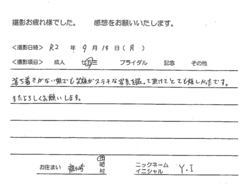 撮影お疲れ様でした。 感想をお願いいたします。
<撮影日時> R2 年 9 月 14 日 ( 月 )
<撮影項目> 成人 七五三 ブライダル 記念 その他
落ち着きがない中でも笑顔がステキな写真を撮って頂けてとても嬉しかったです。
またよろしくお願いします。
お住まい 市 町 村
ニックネーム イニシャル Y.I